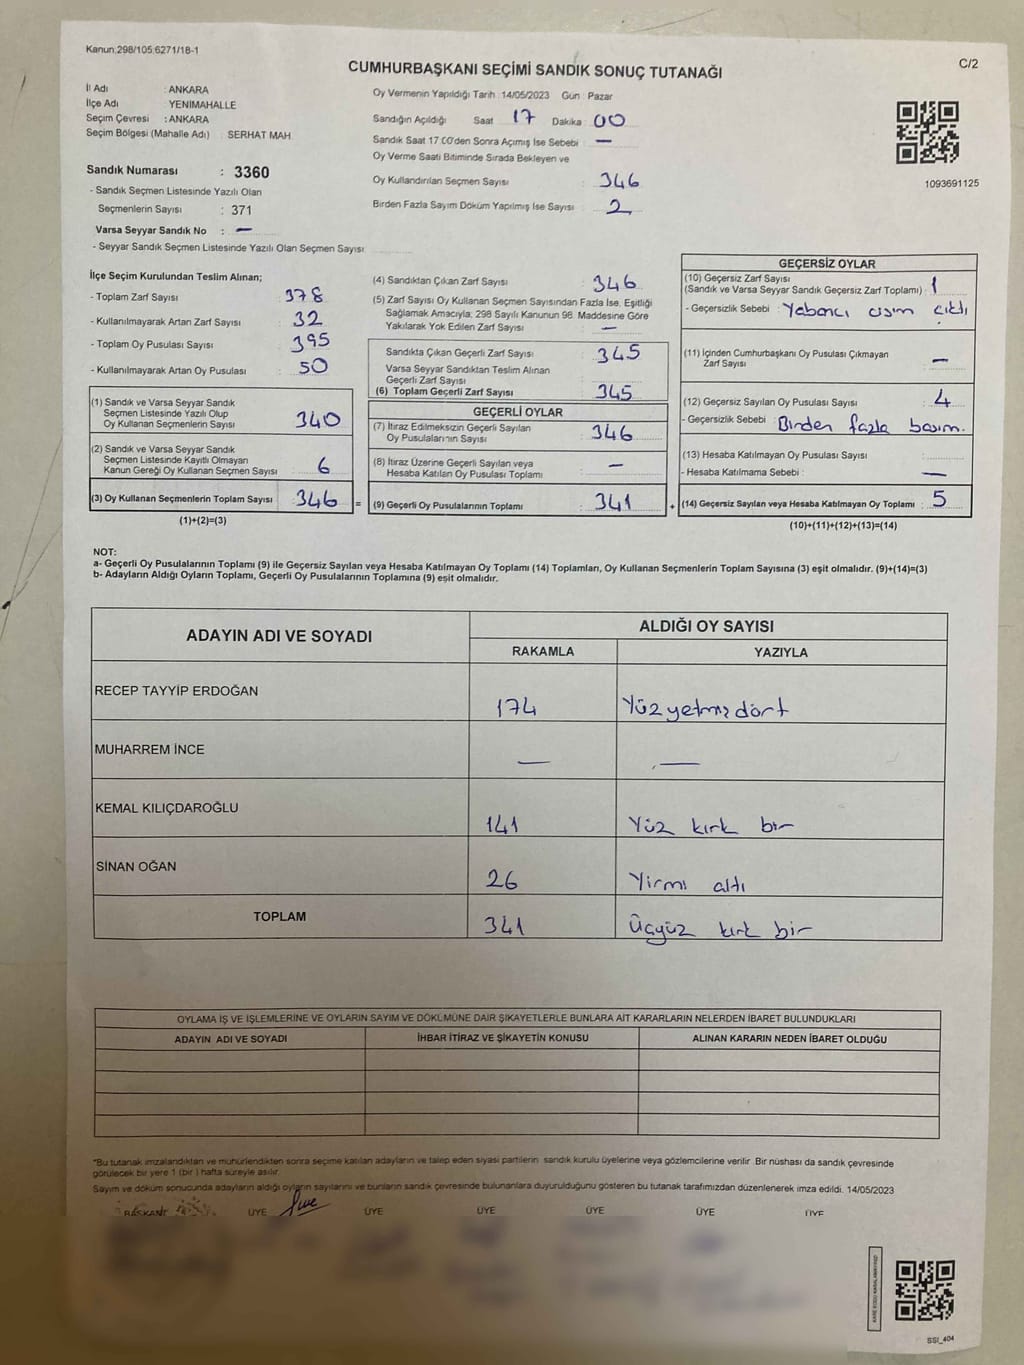 Kanun:298/105:6271/18-1
C/2
CUMHURBAŞKANI SEÇİMİ SANDIK SONUÇ TUTANAĞI
İl Adı : ANKARA
İlçe Adı : YENİMAHALLE
Seçim Çevresi : ANKARA
Seçim Bölgesi (Mahalle Adı) : SERHAT MAH.
Sandık Numarası : 3360
- Sandık Seçmen Listesinde Yazılı Olan
Seçmenlerin Sayısı : 371
Varsa Seyyar Sandık No : —
- Seyyar Sandık Seçmen Listesinde Yazılı Olan Seçmen Sayısı
Oy Vermenin Yapıldığı Tarih : 14/05/2023 Gün : Pazar
Sandığın Açıldığı Saat 17 Dakika : 00
Sandık Saat 17.00'den Sonra Açımış İse Sebebi : —
Oy Verme Saati Bitiminde Sırada Bekleyen ve
Oy Kullandırılan Seçmen Sayısı : 346
Birden Fazla Sayım Döküm Yapılmış İse Sayısı : 2
1093691125
İlçe Seçim Kurulundan Teslim Alınan;
- Toplam Zarf Sayısı : 378
- Kullanılmayarak Artan Zarf Sayısı : 32
- Toplam Oy Pusulası Sayısı : 395
- Kullanılmayarak Artan Oy Pusulası : 50
(1) Sandık ve Varsa Seyyar Sandık
Seçmen Listesinde Yazılı Olup
Oy Kullanan Seçmenlerin Sayısı 340
(2) Sandık ve Varsa Seyyar Sandık
Seçmen Listesinde Kayıtlı Olmayan
Kanun Gereği Oy Kullanan Seçmen Sayısı 6
(3) Oy Kullanan Seçmenlerin Toplam Sayısı 346 =
(1)+(2)=(3)
(4) Sandıktan Çıkan Zarf Sayısı : 346
(5) Zarf Sayısı Oy Kullanan Seçmen Sayısından Fazla İse, Eşitliği
Sağlamak Amacıyla; 298 Sayılı Kanunun 98. Maddesine Göre
Yakılarak Yok Edilen Zarf Sayısı : —
Sandıkta Çıkan Geçerli Zarf Sayısı : 345
Varsa Seyyar Sandıktan Teslim Alınan
Geçerli Zarf Sayısı
(6) Toplam Geçerli Zarf Sayısı : 345
GEÇERLİ OYLAR
(7) İtiraz Edilmeksizin Geçerli Sayılan
Oy Pusulalarının Sayısı : 346
(8) İtiraz Üzerine Geçerli Sayılan veya
Hesaba Katılan Oy Pusulası Toplamı : —
(9) Geçerli Oy Pusulalarının Toplamı : 341 +
GEÇERSİZ OYLAR
(10) Geçersiz Zarf Sayısı
(Sandık ve Varsa Seyyar Sandık Geçersiz Zarf Toplamı) : 1
- Geçersizlik Sebebi : Yabancı cisim çıktı
(11) İçinden Cumhurbaşkanı Oy Pusulası Çıkmayan
Zarf Sayısı : —
(12) Geçersiz Sayılan Oy Pusulası Sayısı : 4
- Geçersizlik Sebebi : Birden fazla basım.
(13) Hesaba Katılmayan Oy Pusulası Sayısı :
- Hesaba Katılmama Sebebi : —
(14) Geçersiz Sayılan veya Hesaba Katılmayan Oy Toplamı : 5
(10)+(11)+(12)+(13)=(14)
NOT:
a- Geçerli Oy Pusulalarının Toplamı (9) ile Geçersiz Sayılan veya Hesaba Katılmayan Oy Toplamı (14) Toplamları, Oy Kullanan Seçmenlerin Toplam Sayısına (3) eşit olmalıdır. (9)+(14)=(3)
b- Adayların Aldığı Oyların Toplamı, Geçerli Oy Pusulalarının Toplamına (9) eşit olmalıdır.
ADAYIN ADI VE SOYADI ALDIĞI OY SAYISI
RAKAMLA YAZIYLA
RECEP TAYYİP ERDOĞAN 174 Yüzyetmişdört
MUHARREM İNCE — —
KEMAL KILIÇDAROĞLU 141 Yüz kırk bir
SİNAN OĞAN 26 Yirmi altı
TOPLAM 341 Üçyüz kırk bir
OYLAMA İŞ VE İŞLEMLERİNE VE OYLARIN SAYIM VE DÖKÜMÜNE DAİR ŞİKAYETLERLE BUNLARA AİT KARARLARIN NELERDEN İBARET BULUNDUKLARI
ADAYIN ADI VE SOYADI İHBAR İTİRAZ VE ŞİKAYETİN KONUSU ALINAN KARARIN NEDEN İBARET OLDUĞU
*Bu tutanak imzalandıktan ve mühürlendikten sonra seçime katılan adayların ve talep eden siyasi partilerin sandık kurulu üyelerine veya gözlemcilerine verilir. Bir nüshası da sandık çevresinde
görülecek bir yere 1 (bir) hafta süreyle asılır.
Sayım ve döküm sonucunda adayların aldığı oyların sayılarını ve bunların sandık çevresinde bulunanlara duyurulduğunu gösteren bu tutanak tarafımızdan düzenlenerek imza edildi. 14/05/2023
BAŞKAN ÜYE ÜYE ÜYE ÜYE ÜYE ÜYE
SSI_404